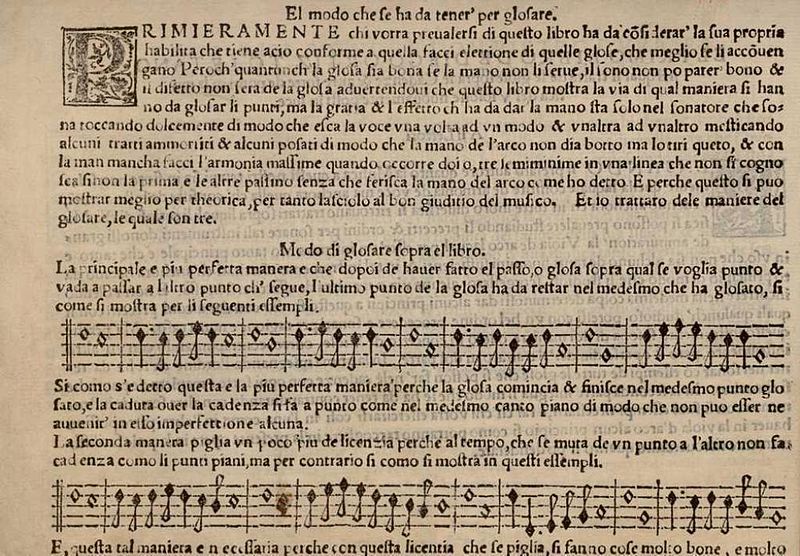 El modo che se ha da tener' per glosare.
PRIMIERAMENTE chi vorra preualersi di questo libro ha da cōsiderar' la sua propria
habilita che tiene acio conforme a quella facci elettione di quelle glose, che meglio se li accōuen
gano Peroch' quantunch la glosa sia bona se la mano non li serue, il sono non po parer' bono &
il difetto non sera de la glosa aduertendoui che questo libro mostra la via di qual maniera si han
no da glosar li punti, ma la gratia & l'effetto ch ha da dar la mano sta solo nel sonatore che so-
na toccando dolcemente di modo che esca la voce vna volta ad vn modo & vnaltra ad vnaltro mesticando
alcuni tratti ammortiti & alcuni posati di modo che la mano de l'arco non dia botto ma lo tiri queto, & con
la man mancha facci l'armonia massime quando occorre doi o, tre semiminime in vna linea che non si cogno
sca si non la prima e le altre passino senza che ferisca la mano del arco come ho detto E perche questo si puo
mostrar meglio per theorica, per tanto lasciolo al bon giuditio del musico. Et io trattaro dele maniere del
glosare, le quale son tre.
Modo di glosare sopra el libro.
La principale e piu perfetta manera e che dopoi de hauer fatto el passo, o glosa sopra qual se voglia punto &
vada a passar a l'altro punto ch' segue, l'ultimo punto de la glosa ha da restar nel medesmo che ha glosato, si
come si mostra per li seguenti essempli.
Si como s'e detto questa e la piu perfetta maniera perche la glosa comincia & finisce nel medesmo punto glo
sato, e la caduta ouer la cadenza si fa a punto come nel medesmo canto piano di modo che non puo esser ne
auuenir' in esso imperfettione alcuna.
La seconda manera piglia vn poco piu de licenzia perche al tempo, che se muta de vn punto a l'altro non fa
cadenza como li punti piani, ma per contrario si como si mostra in questi essempli.
E, questa tal maniera e necessaria perche con questa licentia che se piglia, si fanno cose molto bone, e molto